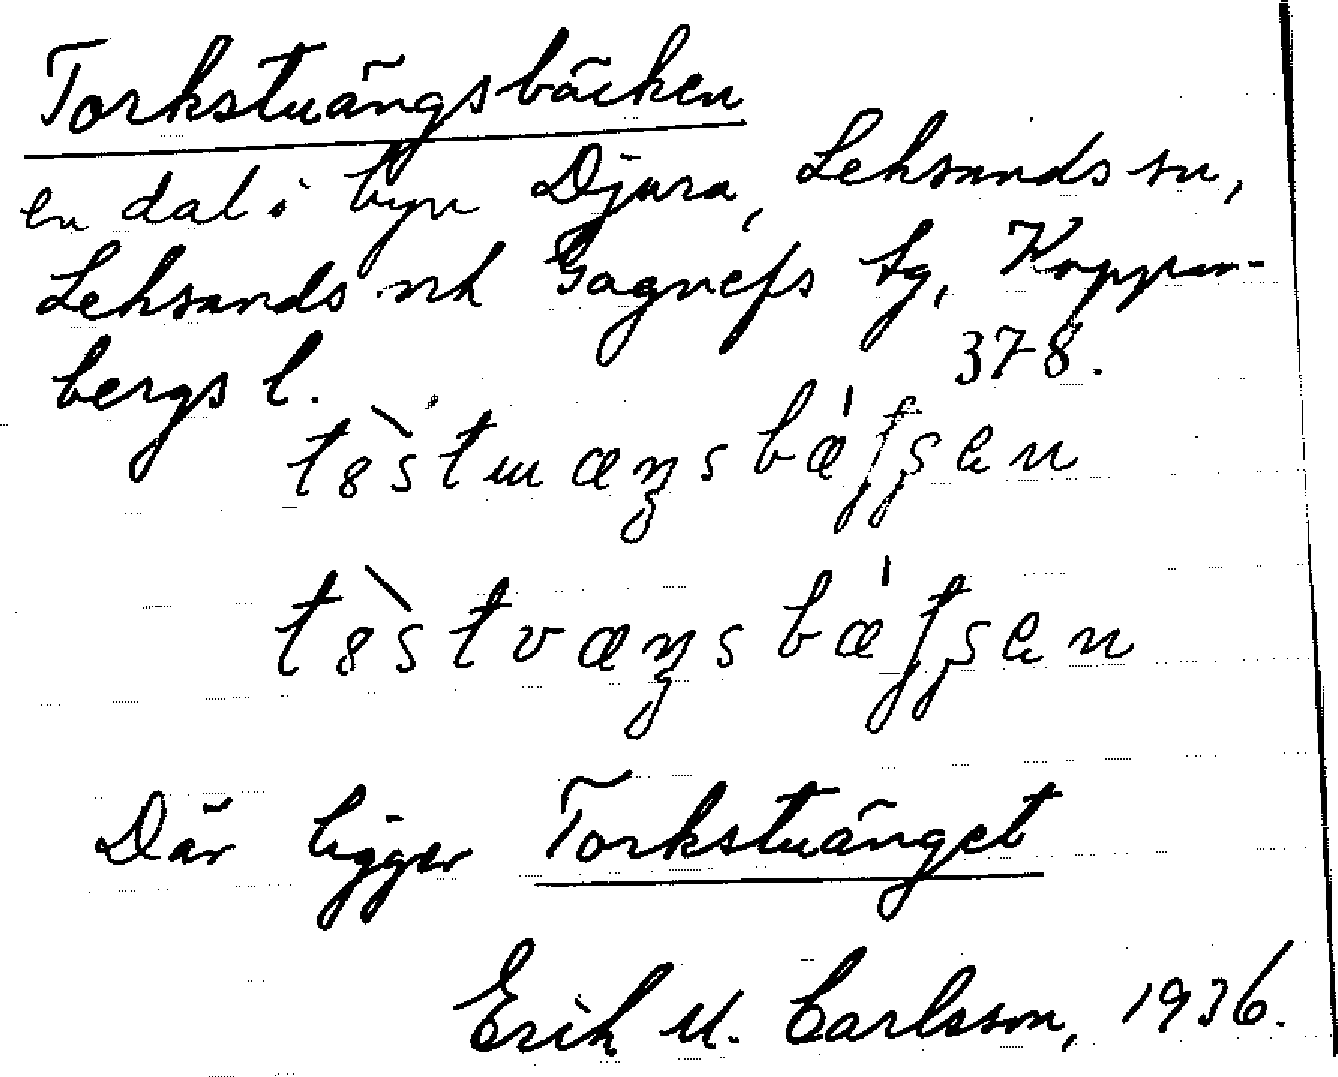 Torkstuängsbäcken
en dal i byn Djura, Leksands sn,
Leksands och Gagnefs tg, Koppar-
bergs l. 378.
t8̀stwæŋsbæ̍ʃʂen
t8̀stvæŋsbæ̍ʃʂen
Där ligger Torkstuänget
Erik U. Carlsson, 1936.